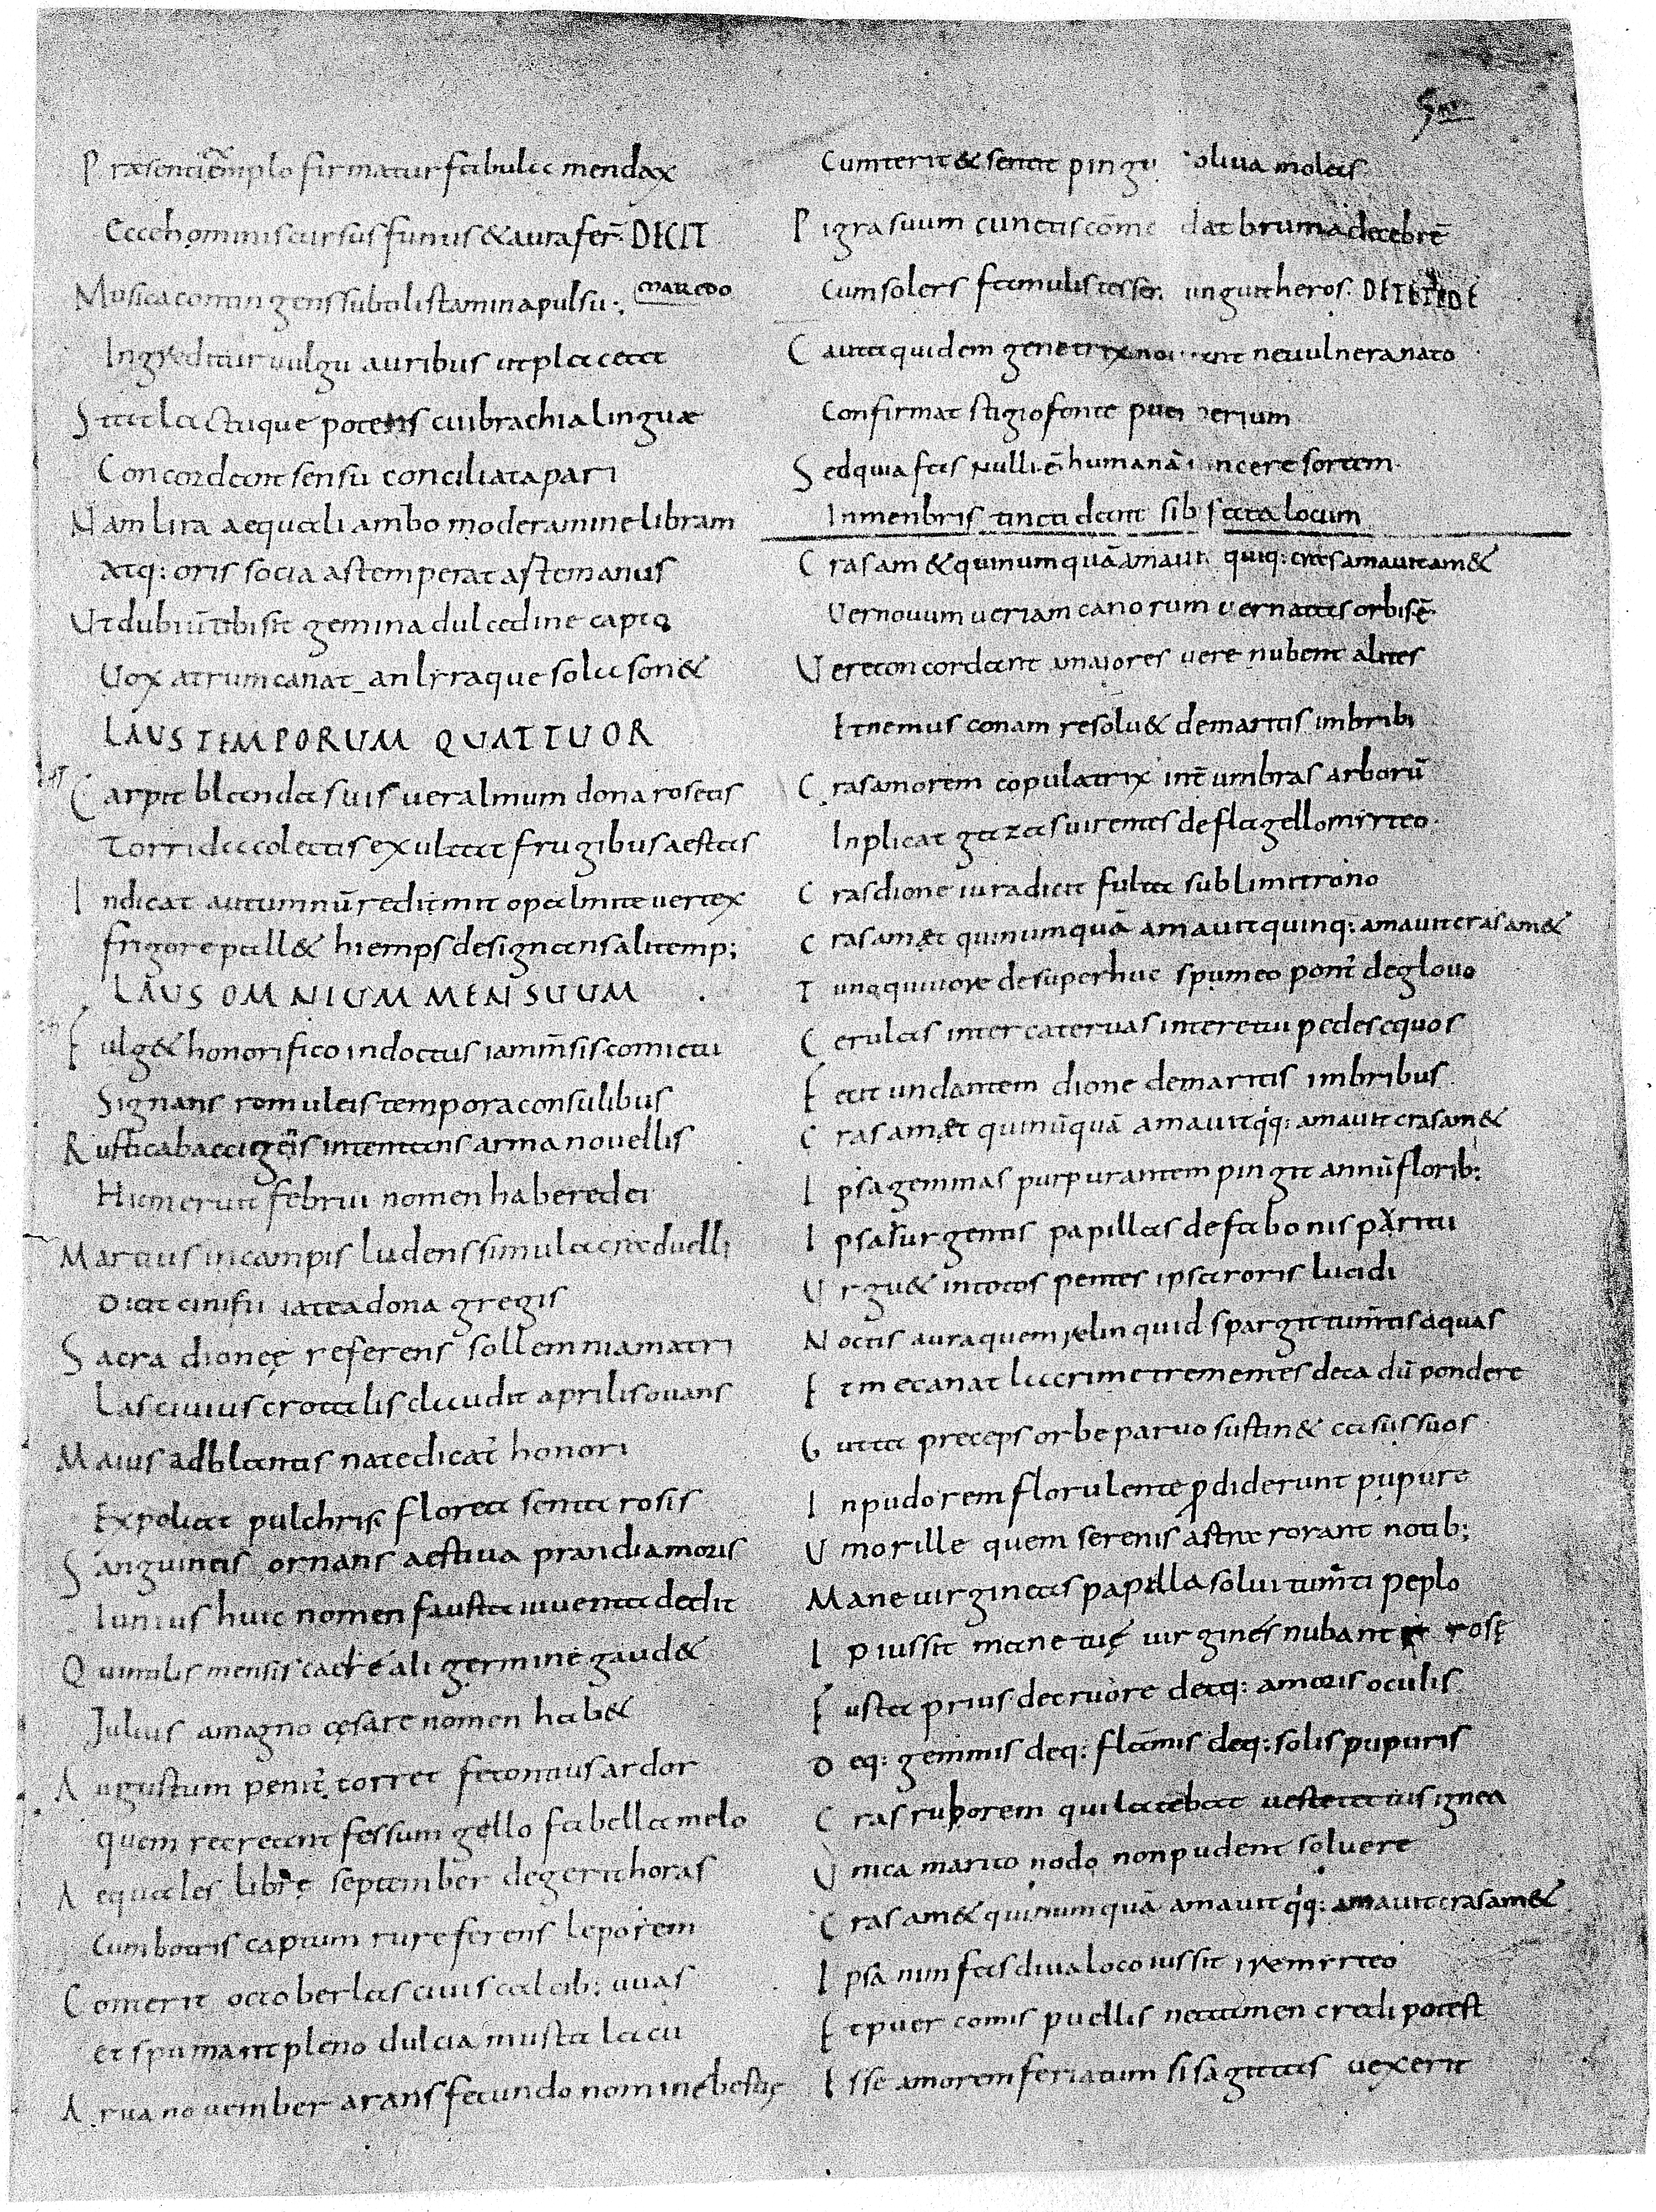 Præsenti exemplo firmatur fabula mendax
Ecce hominis cursus funus & aura fer̄ DECIT
Musica contingens subtili stamina pulsu:, MAREDO
Ingreditur uulgu auribus ut placeat
Stat tactuque potens cui brachia linguæ
Concordant sensu conciliata pari
Nam lira aequali ambo moderamine libram
Atq: oris socias temperat aste manus
Ut dubiū tibi sit gemina dulcedine capto
Vox atrum canat an lyraque sola son&
LAUS TEMPORUM QUATTUOR
Carpit blanda suis uer almum dona rosetis
Torrida colectis exultat frugibus aestas
Indicat autumnū redimit opalmite uertex
frigore pall& hiemps designans alitemp;
LAUS OMNIUM MENSUUM
Fulg& honorifico indoctus iam m̄sis comictu
Signans romuleis tempora consulibus
Rustica baccigeris intentans arma nouellis
Humeruit februi nomen habere dei
Martius in campis ludens simulacra duelli
Dicit cinifii lactea dona gregis
Sacra dionęę referens sollemnia matri
Lasciuius crotalis claudit aprilis ouans
Maius adblantis nate dicat̄ honori
Expoliat pulchris florea senta rosis
Sanguineis ornans aestiua prandia moris
Iunius huic nomen fausta iuuenta dedit
Quintilis mensis cacre ali germine gaud&
Julius a magno cęsare nomen hab&
Augustum penit̄ torret fetontius ardor
quem recreant fessum gello fabella melo
Aequales librę september degerit horas
Cum botris captum rure ferens leporem
Conterit october lasciuis calcib: uuas
et spumant pleno dulcia musta lacu
Arua nouember arans fecundo nomine bestię
Cum terit & sentit pingu oliua moleis
Pigra suum cunctis cōme dat bruma decebrē
Cum solers famulis tesser unguit heros.
Cauta quidem genetrix no ent ne uulnera nato
Confirmat stigio fonte puer perium
Sed quia fas nulli ē humanā i ncere sortem
In menbris tincta dant sib fata locum
Cras am& qui numquā amauit quiq: cras amauit am&
Ver nouum uer iam canorum uer natus orbis ē
Vere concordant amajores uere nubent alites
Et nemus conam resolu& de maritis imbribi
Cras amorem copulatrix int̄ umbras arborū
Inplicat gazas uirentes de flagello mirteo
Cras dione iura dicit fulta sublimi trono
Cras am&t qui numquā amauit quinq: amauit cras am&
Tuno quiuore de super huc spumeo pont̄ de glouo
Cerulas inter cateruas inter etui pedes equos
Fecit undantem dione de maritis imbribus
Cras am&t qui nūquā amauit q̇q: amauit cras am&
Ipsa gemmas purpurantem pingit annū florib:
Ipsa surgentis papillas de fabonis paritu
Urgu& in totos pentes ipsa roris lucidi
Noctis aura quem relinquid spargit tum̄tis aquas
Et mecanat lacrime trementes deca dū pondere
Gutta preceps orbe paruo sustin& casus suos
In pudorem florulente p̱diderunt pupure
Umor ille quem serenis astra rorant notib;
Mane uirgineas papilla solui tum̄ti peplo
Ip iussit mane tuę uirgines nubant rosę
Fusta prius de cruore deq: amoris oculis
Deq: gemmis deq: flāmis deq: solis pupuris
Cras ruborem qui latebat ueste tatus ignea
Unica marito nodo non pudent soluere
Cras am& qui numquā amauit q̇q: amauit cras am&
Ipsa nimfas diua loco iussit ire mirteo
Et puer comis puellis nec tamen credi potest
Isse amorem feriatum si sagittas uexerit